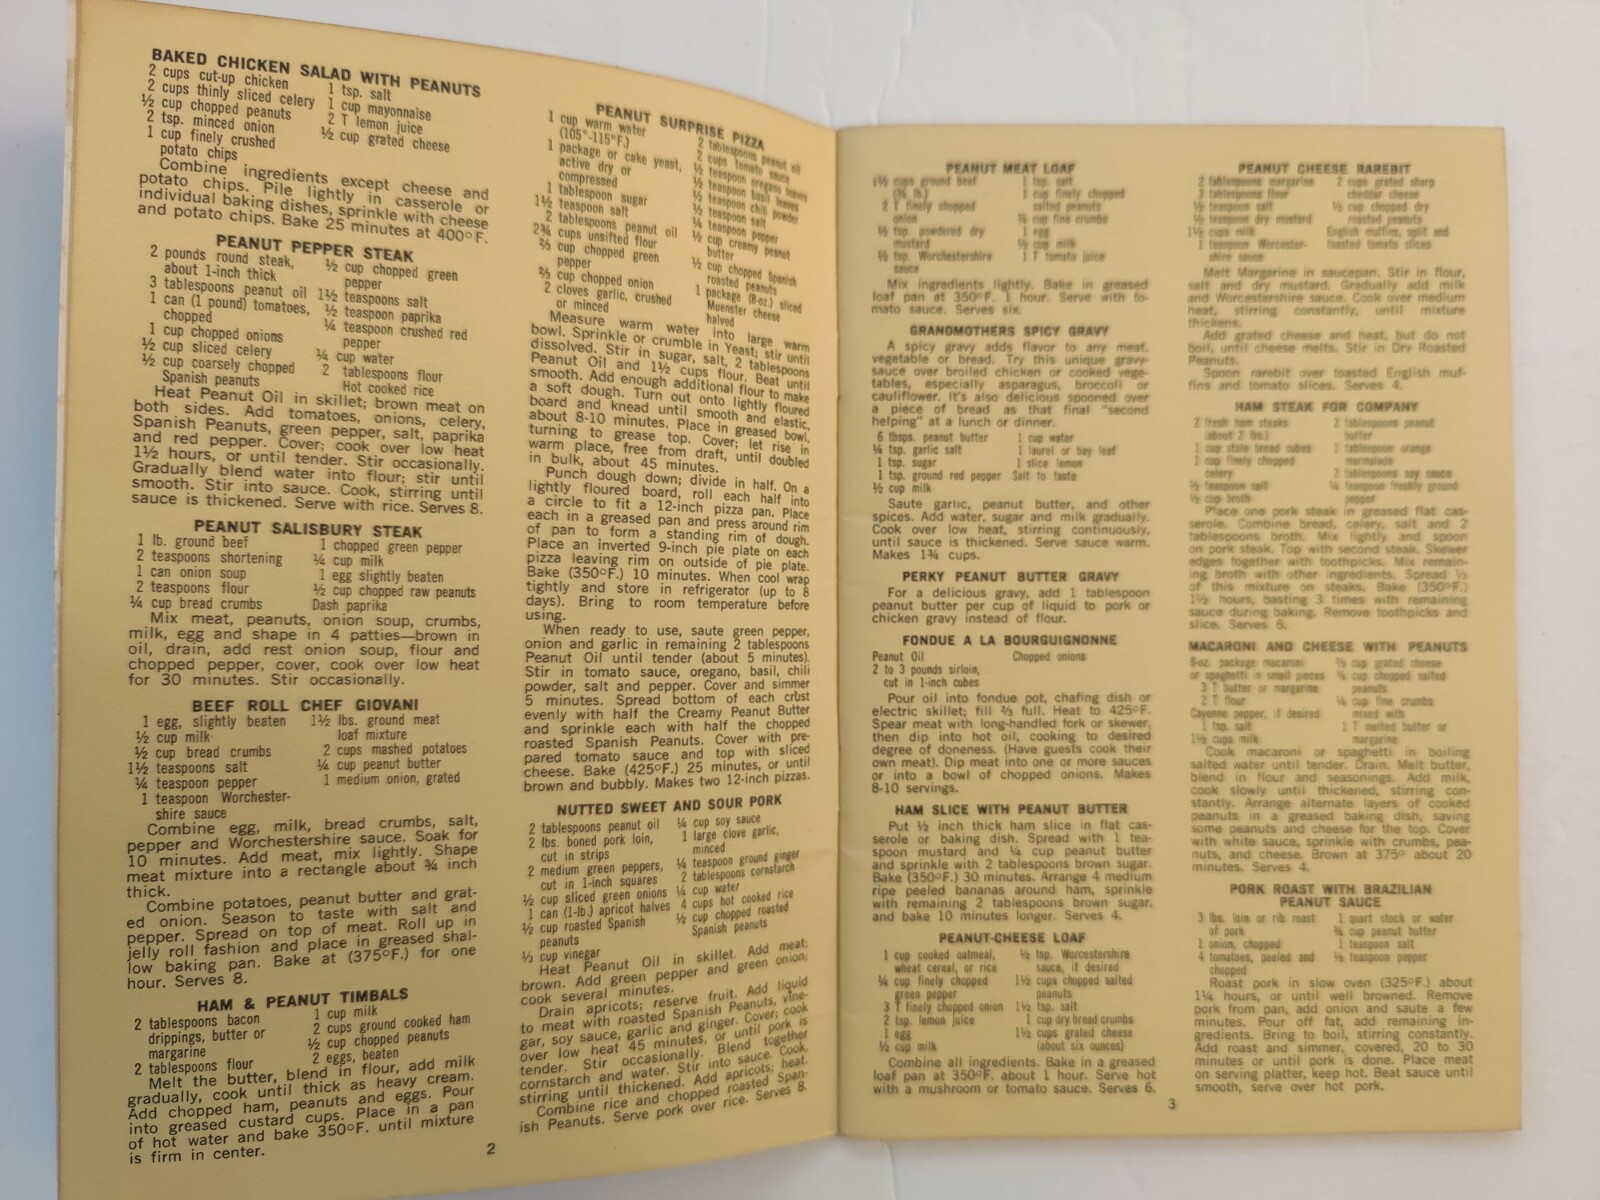 BAKED CHICKEN SALAD WITH PEANUTS
2 cups cut-up chicken
2 cups thinly sliced celery
½ cup chopped peanuts
2 tsp. minced onion
1 cup finely crushed
potato chips
1 tsp. salt
1 cup mayonnaise
2 T lemon juice
½ cup grated cheese
Combine ingredients except cheese and
potato chips. Pile lightly in casserole or
individual baking dishes, sprinkle with cheese
and potato chips. Bake 25 minutes at 400°F.
PEANUT PEPPER STEAK
2 pounds round steak,
about 1-inch thick
3 tablespoons peanut oil
1 can (1 pound) tomatoes,
chopped
1 cup chopped onions
½ cup sliced celery
½ cup coarsely chopped
Spanish peanuts
½ cup chopped green
pepper
1½ teaspoons salt
½ teaspoon paprika
¼ teaspoon crushed red
pepper
¼ cup water
2 tablespoons flour
Hot cooked rice
Heat Peanut Oil in skillet; brown meat on
both sides. Add tomatoes, onions, celery,
Spanish Peanuts, green pepper, salt, paprika
and red pepper. Cover; cook over low heat
1½ hours, or until tender. Stir occasionally.
Gradually blend water into flour; stir until
smooth. Stir into sauce. Cook, stirring until
sauce is thickened. Serve with rice. Serves 8.
PEANUT SALISBURY STEAK
1 lb. ground beef
2 teaspoons shortening
1 can onion soup
2 teaspoons flour
¼ cup bread crumbs
1 chopped green pepper
¼ cup milk
1 egg slightly beaten
½ cup chopped raw peanuts
Dash paprika
Mix meat, peanuts, onion soup, crumbs,
milk, egg and shape in 4 patties—brown in
oil, drain, add rest onion soup, flour and
chopped pepper, cover, cook over low heat
for 30 minutes. Stir occasionally.
BEEF ROLL CHEF GIOVANI
1 egg, slightly beaten
½ cup milk
½ cup bread crumbs
1½ teaspoons salt
¼ teaspoon pepper
1 teaspoon Worcester-
shire sauce
1½ lbs. ground meat
loaf mixture
2 cups mashed potatoes
¼ cup peanut butter
1 medium onion, grated
Combine egg, milk, bread crumbs, salt,
pepper and Worcestershire sauce. Soak for
10 minutes. Add meat, mix lightly. Shape
meat mixture into a rectangle about ¾ inch
thick.
Combine potatoes, peanut butter and grat-
ed onion. Season to taste with salt and
pepper. Spread on top of meat. Roll up in
jelly roll fashion and place in greased shal-
low baking pan. Bake at (375°F.) for one
hour. Serves 8.
HAM & PEANUT TIMBALS
2 tablespoons bacon
drippings, butter or
margarine
2 tablespoons flour
1 cup milk
2 cups ground cooked ham
½ cup chopped peanuts
2 eggs, beaten
Melt the butter, blend in flour, add milk
gradually, cook until thick as heavy cream.
Add chopped ham, peanuts and eggs. Pour
into greased custard cups. Place in a pan
of hot water and bake 350°F. until mixture
is firm in center.
PEANUT SURPRISE PIZZA
1 cup warm water
(105°-115°F.)
1 package or cake yeast,
active dry or
compressed
1 tablespoon sugar
1½ teaspoon salt
2 tablespoons peanut oil
2¾ cups unsifted flour
⅔ cup chopped green
pepper
⅔ cup chopped onion
2 cloves garlic, crushed
or minced
2 tablespoons peanut oil
2 cups tomato sauce
½ teaspoon oregano leaves
½ teaspoon basil leaves
½ teaspoon chili powder
½ teaspoon salt
¼ teaspoon pepper
½ cup creamy peanut
butter
½ cup chopped Spanish
roasted peanuts
1 package (8-oz.) sliced
Muenster cheese
halved
Measure warm water into large warm
bowl. Sprinkle or crumble in Yeast; stir until
dissolved. Stir in sugar, salt, 2 tablespoons
Peanut Oil and 1½ cups flour. Beat until
smooth. Add enough additional flour to make
a soft dough. Turn out onto lightly floured
board and knead until smooth and elastic,
about 8-10 minutes. Place in greased bowl,
turning to grease top. Cover; let rise in
warm place, free from draft, until doubled
in bulk, about 45 minutes.
Punch dough down; divide in half. On a
lightly floured board, roll each half into
a circle to fit a 12-inch pizza pan. Place
each in a greased pan and press around rim
of pan to form a standing rim of dough.
Place an inverted 9-inch pie plate on each
pizza leaving rim on outside of pie plate.
Bake (350°F.) 10 minutes. When cool wrap
tightly and store in refrigerator (up to 8
days). Bring to room temperature before
using.
When ready to use, saute green pepper,
onion and garlic in remaining 2 tablespoons
Peanut Oil until tender (about 5 minutes).
Stir in tomato sauce, oregano, basil, chili
powder, salt and pepper. Cover and simmer
5 minutes. Spread bottom of each crust
evenly with half the Creamy Peanut Butter
and sprinkle each with half the chopped
roasted Spanish Peanuts. Cover with pre-
pared tomato sauce and top with sliced
cheese. Bake (425°F.) 25 minutes, or until
brown and bubbly. Makes two 12-inch pizzas.
NUTTED SWEET AND SOUR PORK
2 tablespoons peanut oil
2 lbs. boned pork loin,
cut in strips
2 medium green peppers,
cut in 1-inch squares
½ cup sliced green onions
1 can (1-lb.) apricot halves
½ cup roasted Spanish
peanuts
⅓ cup vinegar
¼ cup soy sauce
1 large clove garlic,
minced
¼ teaspoon ground ginger
2 tablespoons cornstarch
¼ cup water
4 cups hot cooked rice
½ cup chopped roasted
Spanish peanuts
Heat Peanut Oil in skillet. Add meat;
brown. Add green pepper and green onion;
cook several minutes.
Drain apricots; reserve fruit. Add liquid
to meat with roasted Spanish Peanuts, vine-
gar, soy sauce, garlic and ginger. Cover; cook
over low heat 45 minutes, or until pork is
tender. Stir occasionally. Blend together
cornstarch and water. Stir into sauce. Cook,
stirring until thickened. Add apricots; heat.
Combine rice and chopped roasted Span-
ish Peanuts. Serve pork over rice. Serves 8.
2
PEANUT MEAT LOAF
1½ cups ground beef
(¾ lb.)
2 T finely chopped
onion
½ tsp. powdered dry
mustard
½ tsp. Worchestershire
sauce
1 tsp. salt
1 cup finely chopped
salted peanuts
¾ cup fine crumbs
1 egg
½ cup milk
1 T tomato juice
Mix ingredients lightly. Bake in greased
loaf pan at 350°F. 1 hour. Serve with to-
mato sauce. Serves six.
GRANDMOTHERS SPICY GRAVY
A spicy gravy adds flavor to any meat,
vegetable or bread. Try this unique gravy-
sauce over broiled chicken or cooked vege-
tables, especially asparagus, broccoli or
cauliflower. It's also delicious spooned over
a piece of bread as that final "second
helping" at a lunch or dinner.
6 tbsps. peanut butter
¼ tsp. garlic salt
1 tsp. sugar
1 tsp. ground red pepper
½ cup milk
1 cup water
1 laurel or bay leaf
1 slice lemon
Salt to taste
Saute garlic, peanut butter, and other
spices. Add water, sugar and milk gradually.
Cook over low heat, stirring continuously,
until sauce is thickened. Serve sauce warm.
Makes 1¾ cups.
PERKY PEANUT BUTTER GRAVY
For a delicious gravy, add 1 tablespoon
peanut butter per cup of liquid to pork or
chicken gravy instead of flour.
FONDUE A LA BOURGUIGNONNE
Peanut Oil
2 to 3 pounds sirloin,
cut in 1-inch cubes
Chopped onions
Pour oil into fondue pot, chafing dish or
electric skillet; fill ⅔ full. Heat to 425°F.
Spear meat with long-handled fork or skewer,
then dip into hot oil, cooking to desired
degree of doneness. (Have guests cook their
own meat). Dip meat into one or more sauces
or into a bowl of chopped onions. Makes
8-10 servings.
HAM SLICE WITH PEANUT BUTTER
Put ½ inch thick ham slice in flat cas-
serole or baking dish. Spread with 1 tea-
spoon mustard and ¼ cup peanut butter
and sprinkle with 2 tablespoons brown sugar.
Bake (350°F.) 30 minutes. Arrange 4 medium
ripe peeled bananas around ham, sprinkle
with remaining 2 tablespoons brown sugar,
and bake 10 minutes longer. Serves 4.
PEANUT-CHEESE LOAF
1 cup cooked oatmeal,
wheat cereal, or rice
¼ cup finely chopped
green pepper
3 T finely chopped onion
2 tsp. lemon juice
1 egg
½ cup milk
½ tsp. Worcestershire
sauce, if desired
1½ cups chopped salted
peanuts
1½ tsp. salt
1 cup dry bread crumbs
1½ cups grated cheese
(about six ounces)
Combine all ingredients. Bake in a greased
loaf pan at 350°F. about 1 hour. Serve hot
with a mushroom or tomato sauce. Serves 6.
PEANUT CHEESE RAREBIT
2 tablespoons margarine
3 tablespoons flour
½ teaspoon salt
½ teaspoon dry mustard
1½ cups milk
1 teaspoon Worcester-
shire sauce
2 cups grated sharp
cheddar cheese
½ cup chopped dry
roasted peanuts
English muffins, split and
toasted tomato slices
Melt Margarine in saucepan. Stir in flour,
salt and dry mustard. Gradually add milk
and Worcestershire sauce. Cook over medium
heat, stirring constantly, until mixture
thickens.
Add grated cheese and heat, but do not
boil, until cheese melts. Stir in Dry Roasted
Peanuts.
Spoon rarebit over toasted English muf-
fins and tomato slices. Serves 4.
HAM STEAK FOR COMPANY
2 fresh ham steaks
(about 2 lbs.)
1 cup stale bread cubes
1 cup finely chopped
celery
½ teaspoon salt
½ cup broth
2 tablespoons peanut
butter
1 tablespoon orange
marmalade
2 tablespoons soy sauce
¼ teaspoon freshly ground
pepper
Place one pork steak in greased flat cas-
serole. Combine bread, celery, salt and 2
tablespoons broth. Mix lightly and spoon
on pork steak. Top with second steak. Skewer
edges together with toothpicks. Mix remain-
ing broth with other ingredients. Spread ⅓
of this mixture on steaks. Bake (350°F.)
1½ hours, basting 3 times with remaining
sauce during baking. Remove toothpicks and
slice. Serves 6.
MACARONI AND CHEESE WITH PEANUTS
8-oz. package macaroni
or spaghetti in small pieces
3 T butter or margarine
2 T flour
Cayenne pepper, if desired
1 tsp. salt
1½ cups milk
⅔ cup grated cheese
¾ cup chopped salted
peanuts
¼ cup fine crumbs
mixed with
1 T melted butter or
margarine
Cook macaroni or spaghetti in boiling
salted water until tender. Drain. Melt butter,
blend in flour and seasonings. Add milk,
cook slowly until thickened, stirring con-
stantly. Arrange alternate layers of cooked
peanuts in a greased baking dish, saving
some peanuts and cheese for the top. Cover
with white sauce, sprinkle with crumbs, pea-
nuts, and cheese. Brown at 375° about 20
minutes. Serves 4.
PORK ROAST WITH BRAZILIAN
PEANUT SAUCE
3 lbs. loin or rib roast
of pork
1 onion, chopped
4 tomatoes, peeled and
chopped
1 quart stock or water
¾ cup peanut butter
1 teaspoon salt
⅛ teaspoon pepper
Roast pork in slow oven (325°F.) about
1¼ hours, or until well browned. Remove
pork from pan, add onion and saute a few
minutes. Pour off fat, add remaining in-
gredients. Bring to boil, stirring constantly.
Add roast and simmer, covered, 20 to 30
minutes or until pork is done. Place meat
on serving platter, keep hot. Beat sauce until
smooth, serve over hot pork.
3